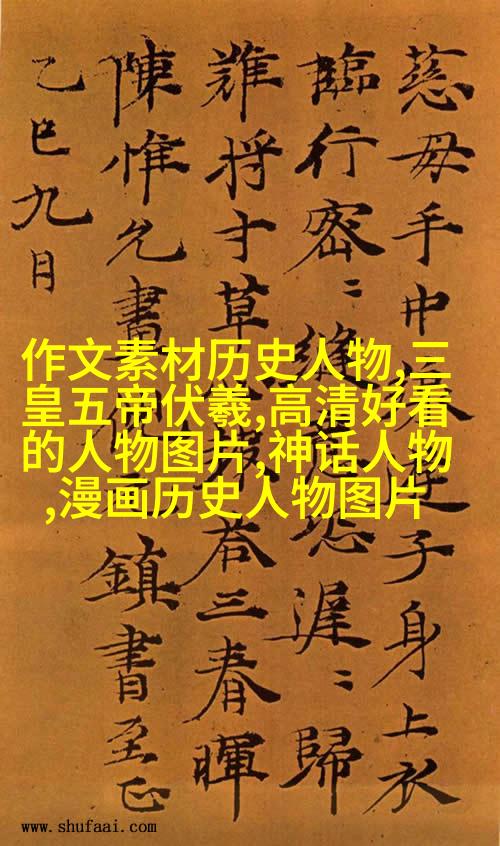 慈母手中子身上衣
臨行密〻縫恐遲〻歸
難將寸草答三春暉
陳惟允書鎮書至正
乙巳九月
作文素材历史人物,三
皇五帝伏羲,高清好看
的人物图片,神话人物
,漫画历史人物图片
www.shufaai.com